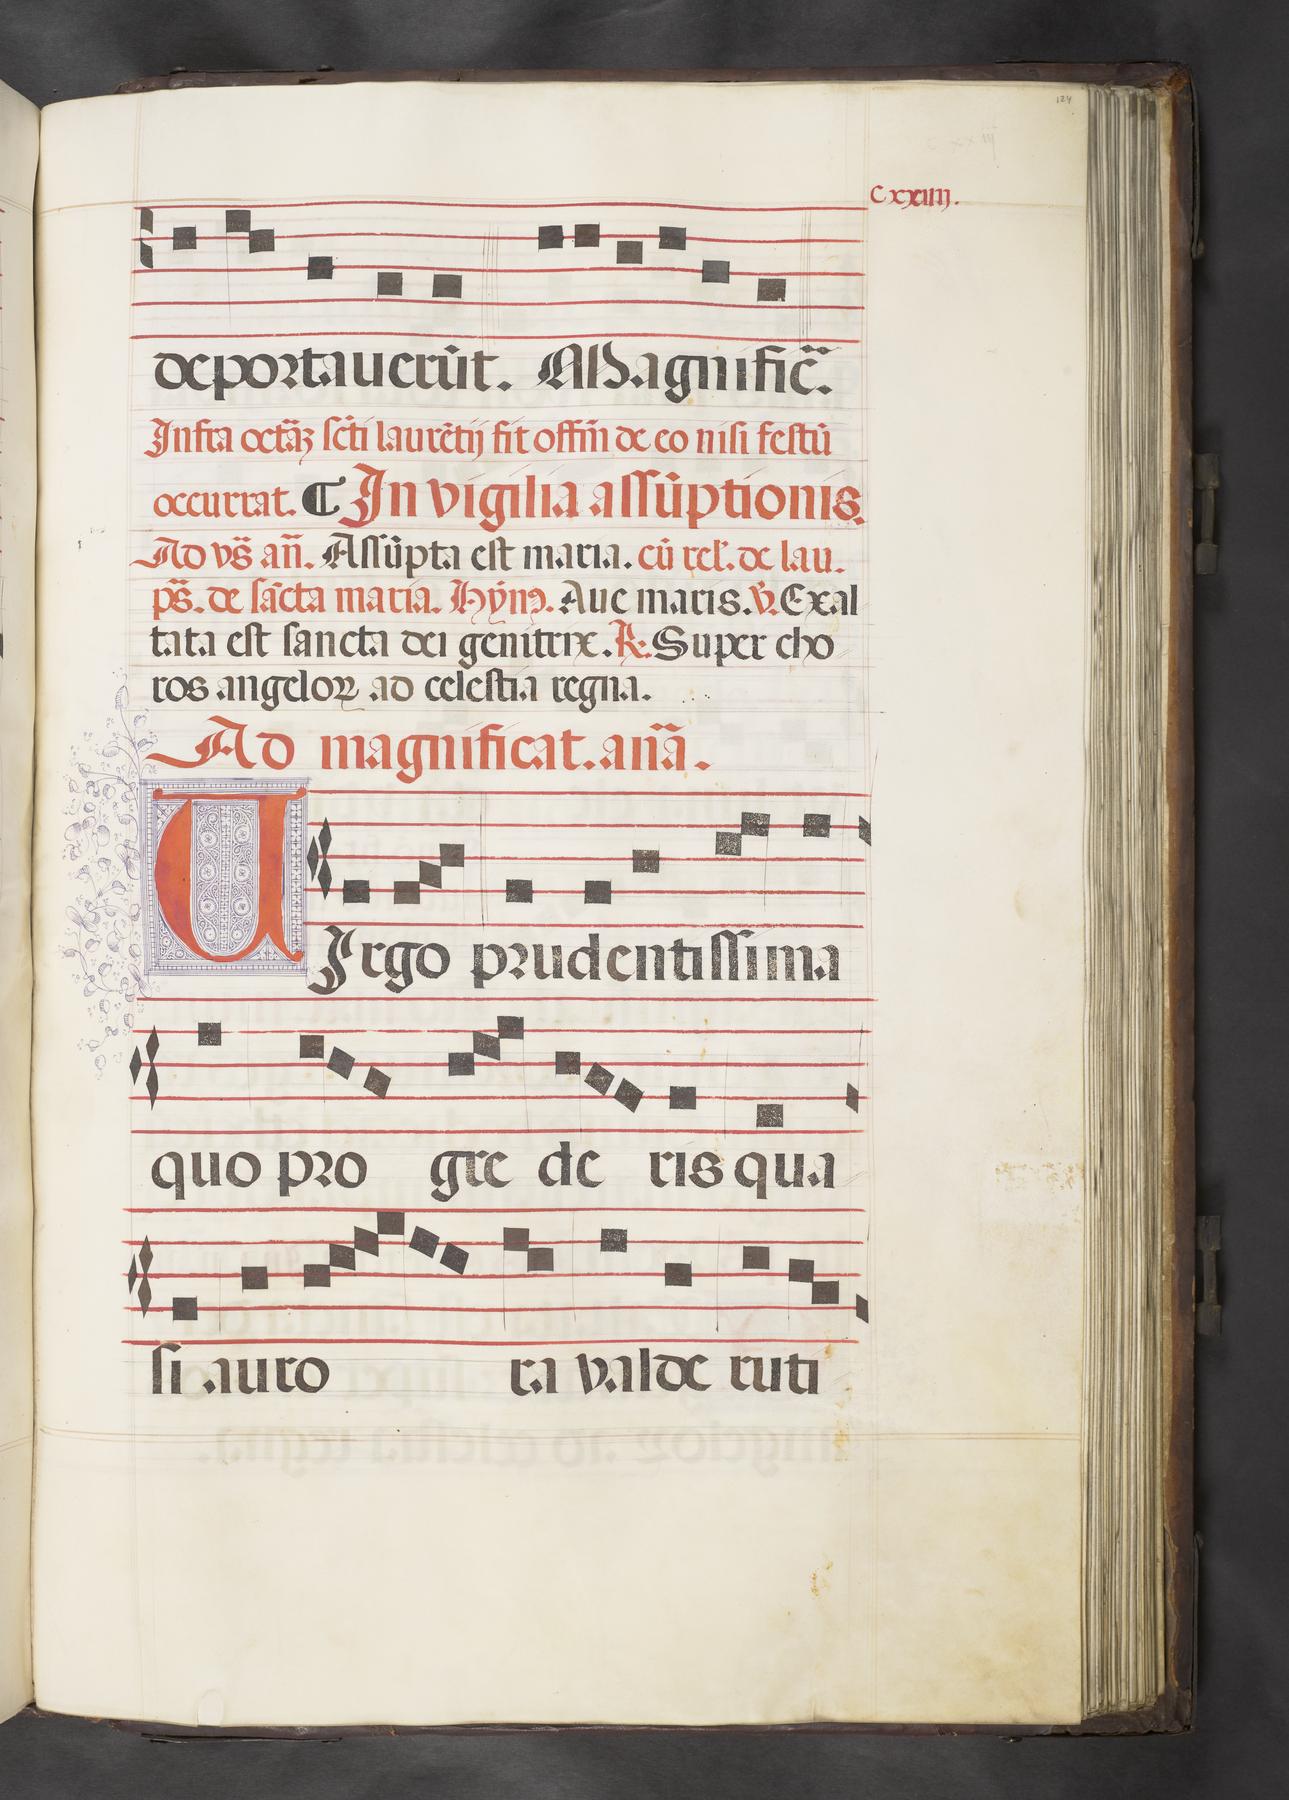 124
Cxxiiij.
deportauerūt. Magnific̄.
Infra octāꝫ scti laurētij fit offm̄ de eo nisi festū
occurrat. ¶ In vigilia assūptionis.
Ad vs̄ an̄. Assūpta est maria. cū rel'. de lau.
ps̄. de sācta maria. Hym̄. Aue maris. ℣. Exal
tata est sancta dei genitrix. ℟. Super cho
ros angeloꝝ ad celestia regna.
Ad magnificat. an̄a.
UIrgo prudentissima
quo pro gre de ris qua
si auro ra valde ruti